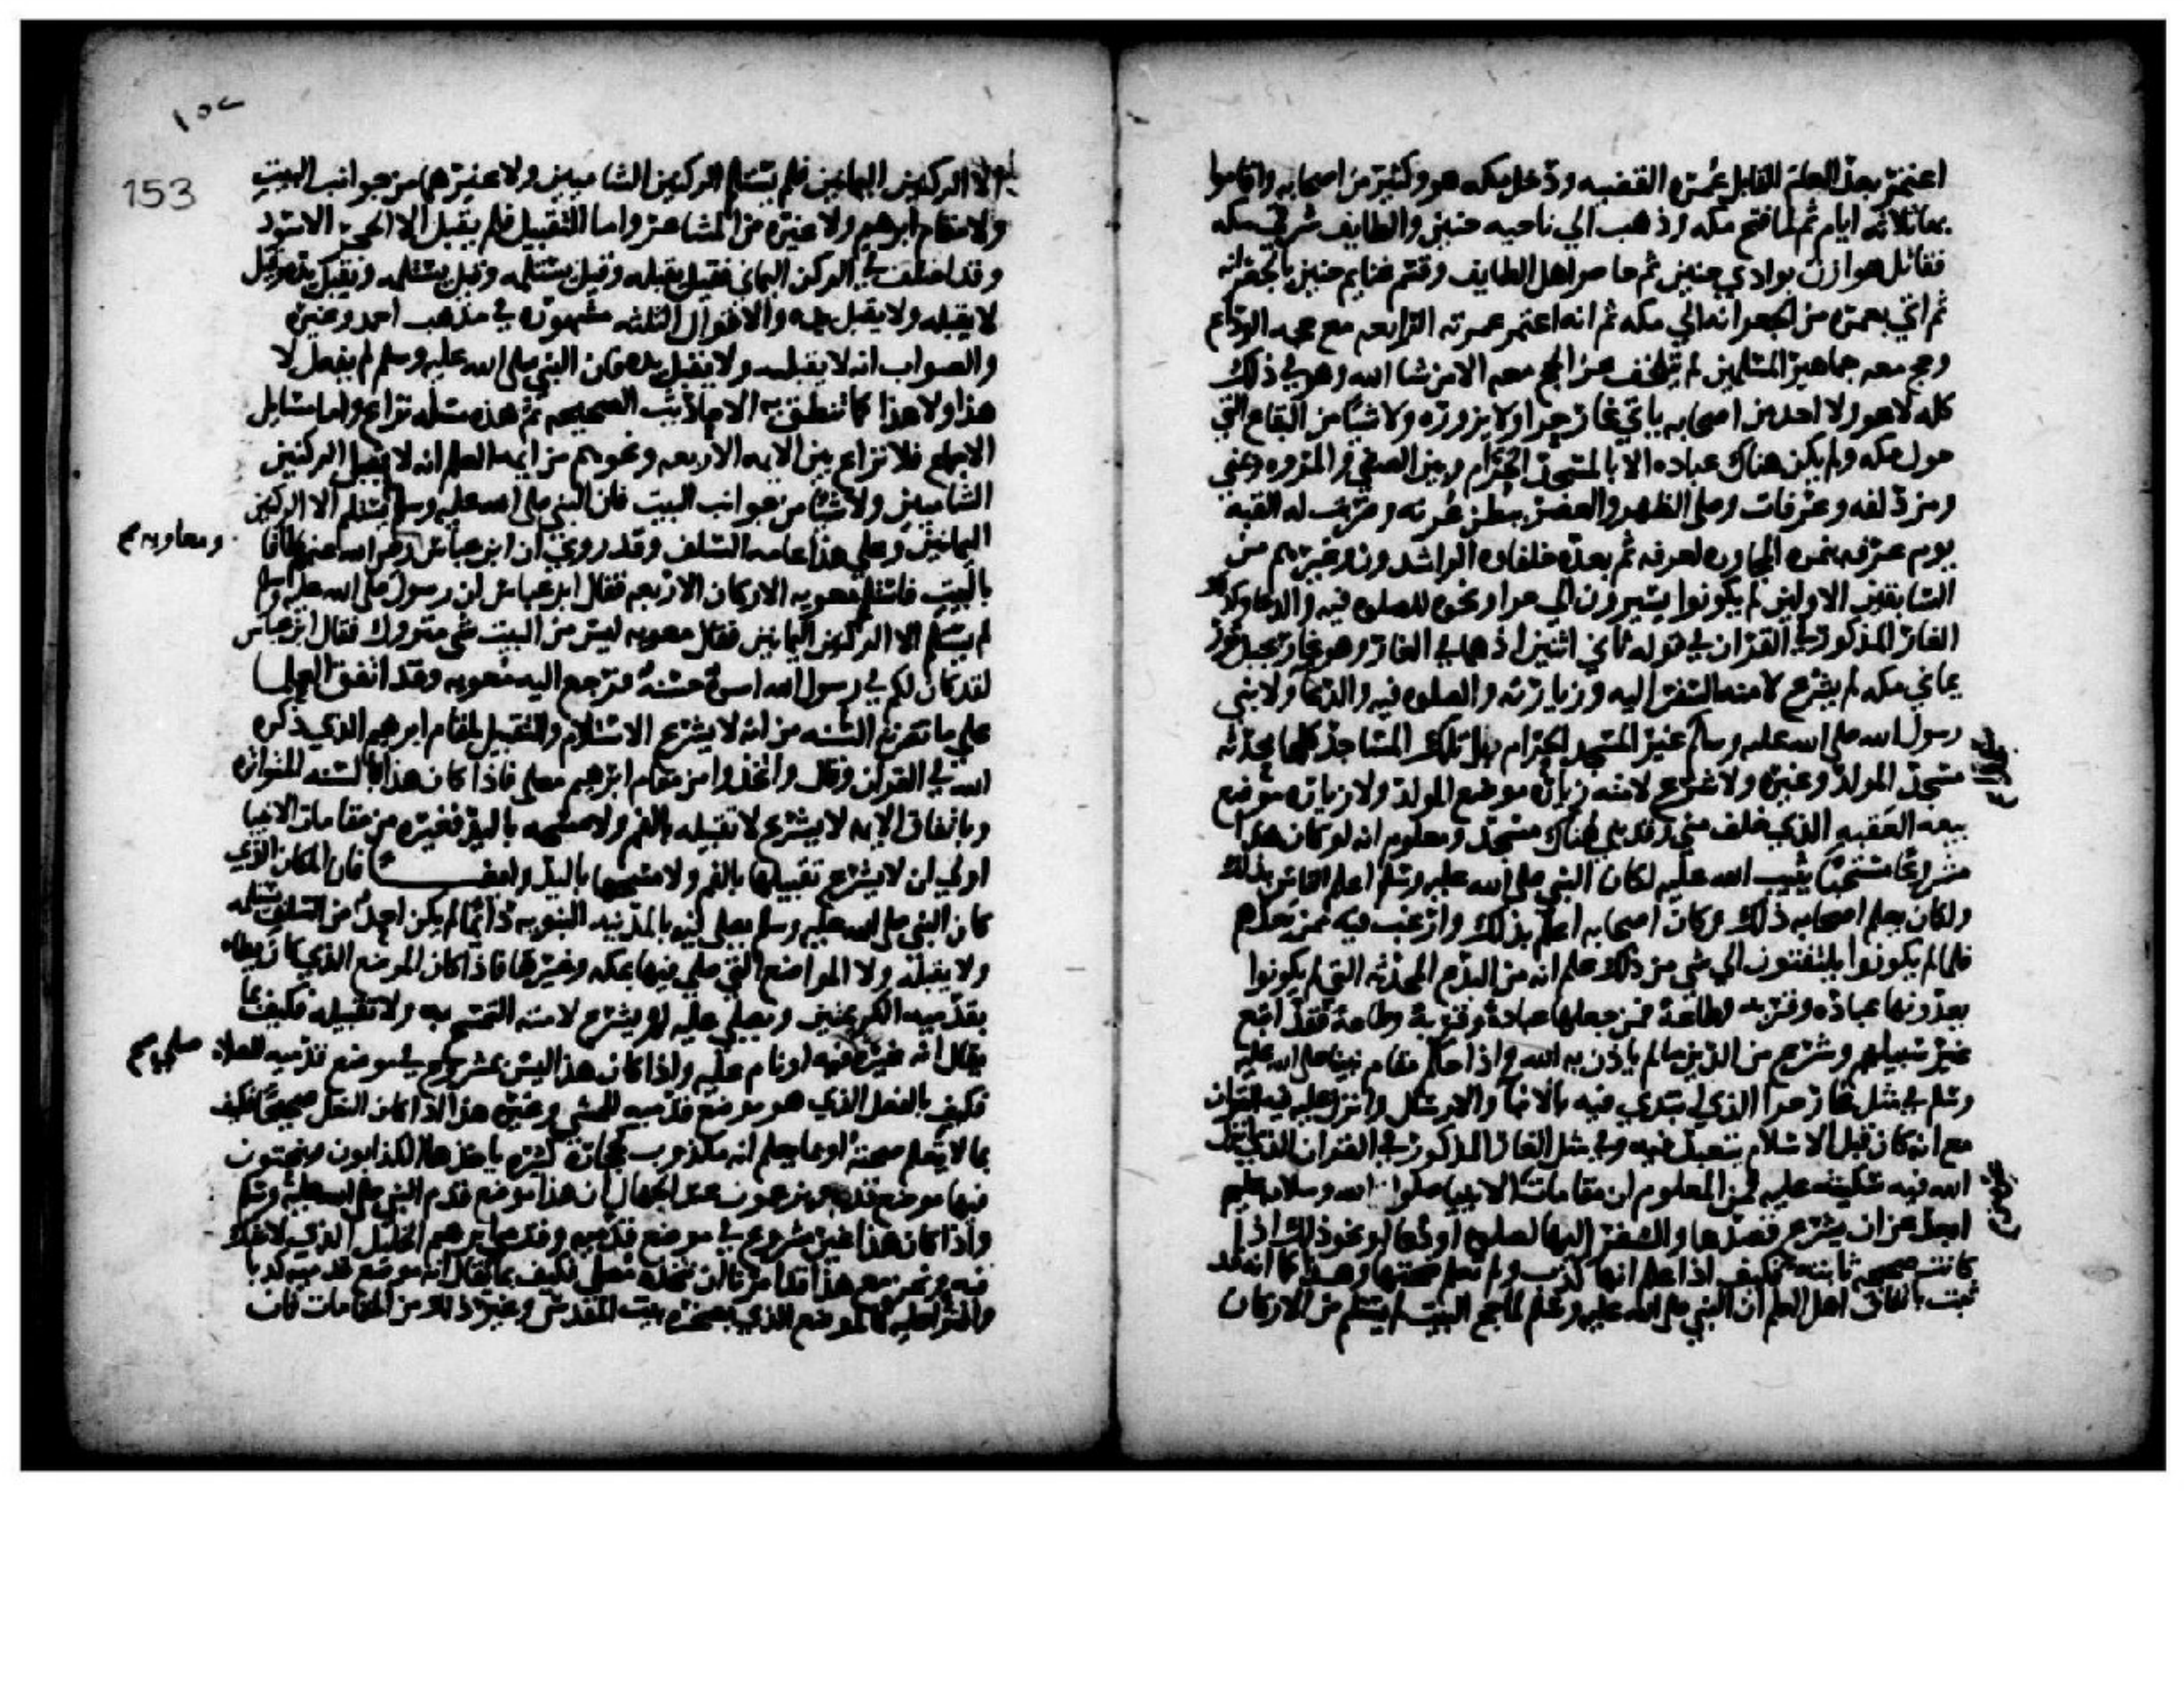 اعتمر بعد العام القابل عمره القضيه ودخل مكه هو وكثير من اصحابه واقاموا
بها ثلاثه ايام ثم لما فتح مكه وذهب الي ناحيه حنين والطايف شرقي مكه
فقاتل هوازن بوادي حنين ثم حاصر اهل الطايف وقسم غنايم حنين بالجعرانه
ثم اتي بعمره من الجعرانه الي مكه ثم انه اعتمر عمرته الرابعه مع حجه الوداع
وحج معه جماهير المسلمين لم يتخلف عن الحج معه الا من شا الله وهو في ذلك
كله لا هو ولا احد من اصحابه ياتي غار حرا ولا يزوره ولا شيا من البقاع التي
حول مكه ولم يكن هناك عباده الا بالمسجد الحرام وبين الصفي والمروه وبمني
ومزدلفه وعرفات وصلي الظهر والعصر ببطن عرنه وضربت له القبه
يوم عرفه بنمره المجاوره لعرفه ثم بعده خلفاوه الراشدون وغيرهم من
السابقين الاولين لم يكونوا يسيرون الي حرا ونحوه للصلوه فيه والدعا وكذلك
الغار المذكور في القران في قوله ثاني اثنين اذ هما في الغار وهو غار بجبل ثور
يماني مكه لم يشرع لامته السفر اليه وزيارته والصلوه فيه والدعا ولا بني
رسول الله صلي الله عليه وسلم غير المسجد الحرام بل تلك المساجد كلها محدثه
مسجد المولد وغيره ولا شرع لامته زياره موضع المولد ولا زياره موضع
بيعه العقبه الذي خلف مني وقد بني هناك مسجد ومعلوم انه لو كان هذا
مشروعا مستحبا يثيب الله عليه لكان النبي صلي الله عليه وسلم اعلم الناس بذلك
ولكان يعلم اصحابه ذلك وكان اصحابه اعلم بذلك وارغب فيه ممن بعدهم
فلما لم يكونوا يلتفتون الي شي من ذلك علم انه من البدع المحدثه التي لم يكونوا
يعدونها عباده وقربه وطاعة فمن جعلها عبادة وقربة وطاعة فقد اتبع
غير سبيلهم وشرع من الدين ما لم ياذن به الله واذا كان مقام نبينا صلي الله عليه
وسلم في مثل غار حرا الذي ابتدي فيه بالانبا والارسال وانزل عليه فيه القران
مع انه كان قبل الاسلام يتعبد فيه وفي مثل الغار المذكور في القران الذي انزل
الله فيه سكينته عليه فمن المعلوم ان مقامات الانبيا صلوات الله وسلامه عليهم
ابعد عن ان يشرع قصدها والسفر اليها لصلوه او دعا او نحو ذلك اذا
كانت صحيحه ثابته فكيف اذا علم انها كذب ولم تعلم صحتها وهذا كما انه قد
ثبت باتفاق اهل العلم ان النبي صلي الله عليه وسلم لما حج البيت لم يستلم من الاركان
١٥٢
153
الا الركنين اليمانيين فلم يستلم الركنين الشاميين ولا غيرهما من جوانب البيت
ولا مقام ابرهيم ولا غيره من المشاعر واما التقبيل فلم يقبل الا الحجر الاسود
وقد اختلف في الركن اليماني فقيل يقبله وقيل يستلمه وقيل يستلمه ويقبل يده وقيل
لا يقبله ولا يقبل يده والاقوال الثلثه مشهوره في مذهب احمد وغيره
والصواب انه لا يقبله ولا يقبل يده فان النبي صلي الله عليه وسلم لم يفعل لا
هذا ولا هذا كما تنطق به الاحاديث الصحيحه ثم هذه مسله نزاع واما مسايل
الاجماع فلا نزاع بين الايمه الاربعه ونحوهم من ايمه العلم انه لا يقبل الركنين
الشاميين ولا شيا من جوانب البيت فان النبي صلي الله عليه وسلم لم يستلم الا الركنين
اليمانيين وعلي هذا عامه السلف وقد روي ان ابن عباس رضي الله عنهما طافا
ومعاويه
بالبيت فاستلم معويه الاركان الاربعه فقال ابن عباس ان رسول الله صلي الله عليه وسلم
لم يستلم الا الركنين اليمانيين فقال معويه ليس من البيت شي متروك فقال ابن عباس
لقد كان لكم في رسول الله اسوة حسنة فرجع اليه معويه وقد اتفق العلما
علي ما مضت به السنه من انه لا يشرع الاستلام والتقبيل لمقام ابرهيم الذي ذكره
الله في القران وقال واتخذوا من مقام ابرهيم مصلي فاذا كان هذا بالسنه المتواتره
وباتفاق الايمه لا يشرع لا تقبيله بالفم ولا مسحه باليد فغيره من مقامات الانبيا
اولي ان لا يشرع تقبيلها بالفم ولا مسحها باليد وايضا فان المكان الذي
كان النبي صلي الله عليه وسلم يصلي فيه بالمدينه النبويه دايما لم يكن احد من السلف يستلمه
ولا يقبله ولا المواضع التي صلي فيها بمكه وغيرها فاذا كان الموضع الذي كان يطاه
بقدميه الكريمتين ويصلي عليه لم يشرع لامته التمسح به ولا تقبيله فكيف بما
يقال ان غيره صلي فيه او نام عليه واذا كان هذا ليس بمشروع في موضع قدميه للصلاه
فكيف بالنعل الذي هو موضع قدميه للمشي وغيره هذا اذا كان النعل صحيحا فكيف
بما لا يعلم صحته او بما يعلم انه مكذوب كحجاره كثيره ياخذها الكذابون وينحتون
فيها موضع قدم ويزعمون عند الجهال ان هذا موضع قدم النبي صلي الله عليه وسلم
واذا كان هذا غير مشروع في موضع قدميه وقدمي ابرهيم الخليل الذي لا شك
فيه ونحن مع هذا قد امرنا ان نتخذه مصلي فكيف بما يقال انه موضع قدميه كذبا
وافترا عليه كالموضع الذي بصخره بيت المقدس وغير ذلك من المقامات فان